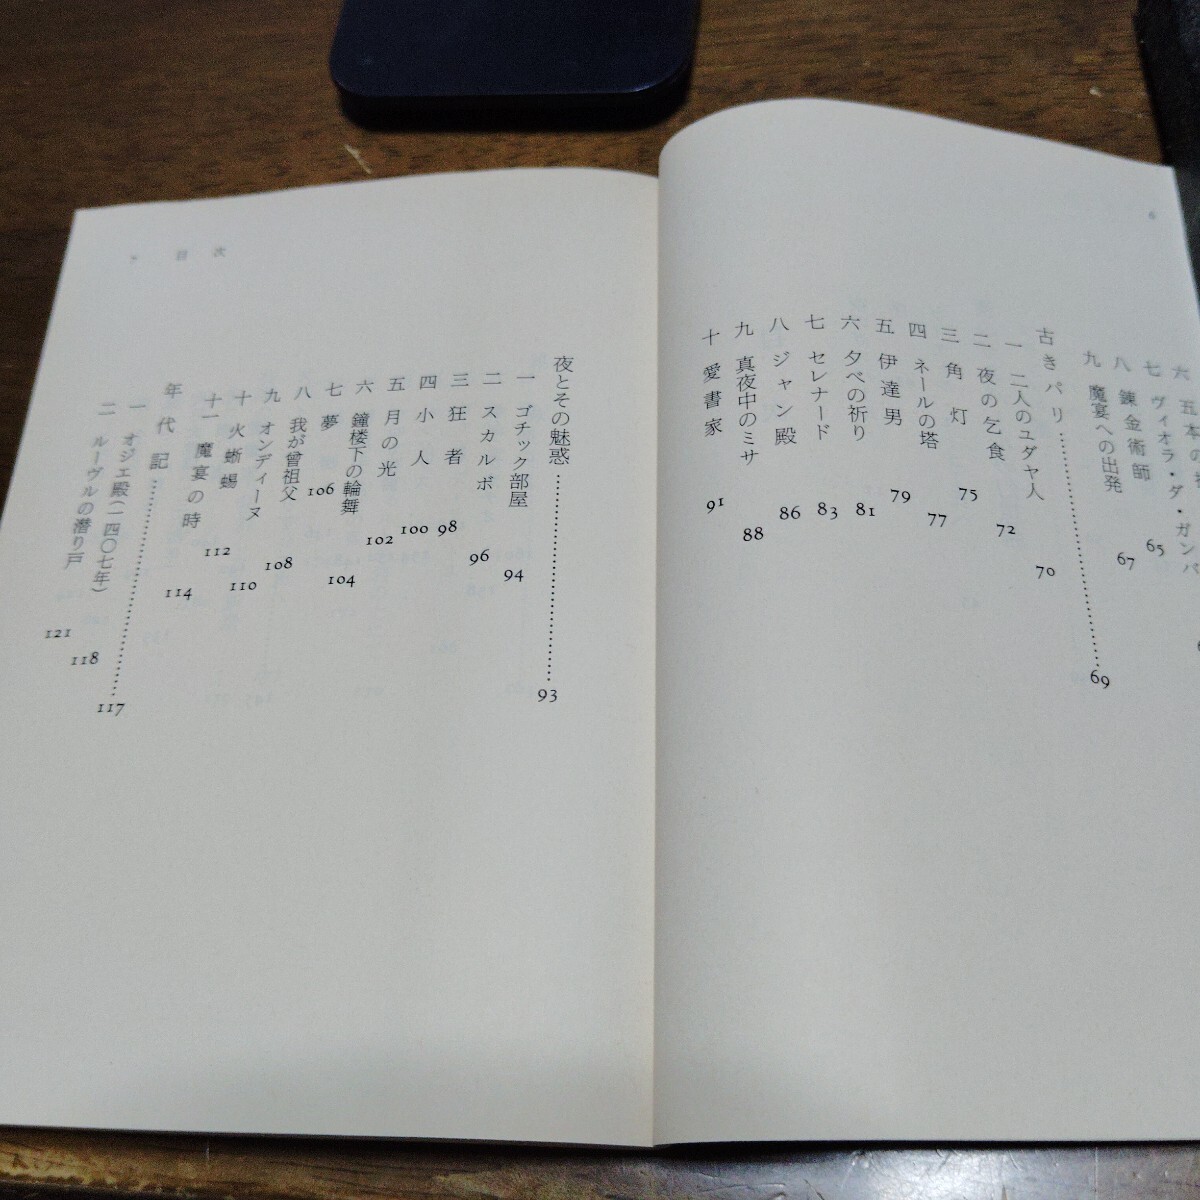 6
七 ヴィオラ・ダ・ガンバ 65
八 錬金術師 67
九 魔宴への出発
古きパリ 69
一 二人のユダヤ人 70
二 夜の乞食 72
三 角灯 75
四 ネールの塔 77
五 伊達男 79
六 夕べの祈り 81
七 セレナード 83
八 ジャン殿 86
九 真夜中のミサ 88
十 愛書家 91
目次
夜とその魅惑 93
一 ゴチック部屋 94
二 スカルボ 96
三 狂者 98
四 小人 100
五 月の光 102
六 鐘楼下の輪舞 104
七 夢 106
八 我が曾祖父 108
九 オンディーヌ 110
十 火蜥蜴 112
十一 魔宴の時 114
年代記 117
一 オジエ殿(一四〇七年) 118
二 ルーヴルの潜り戸 121